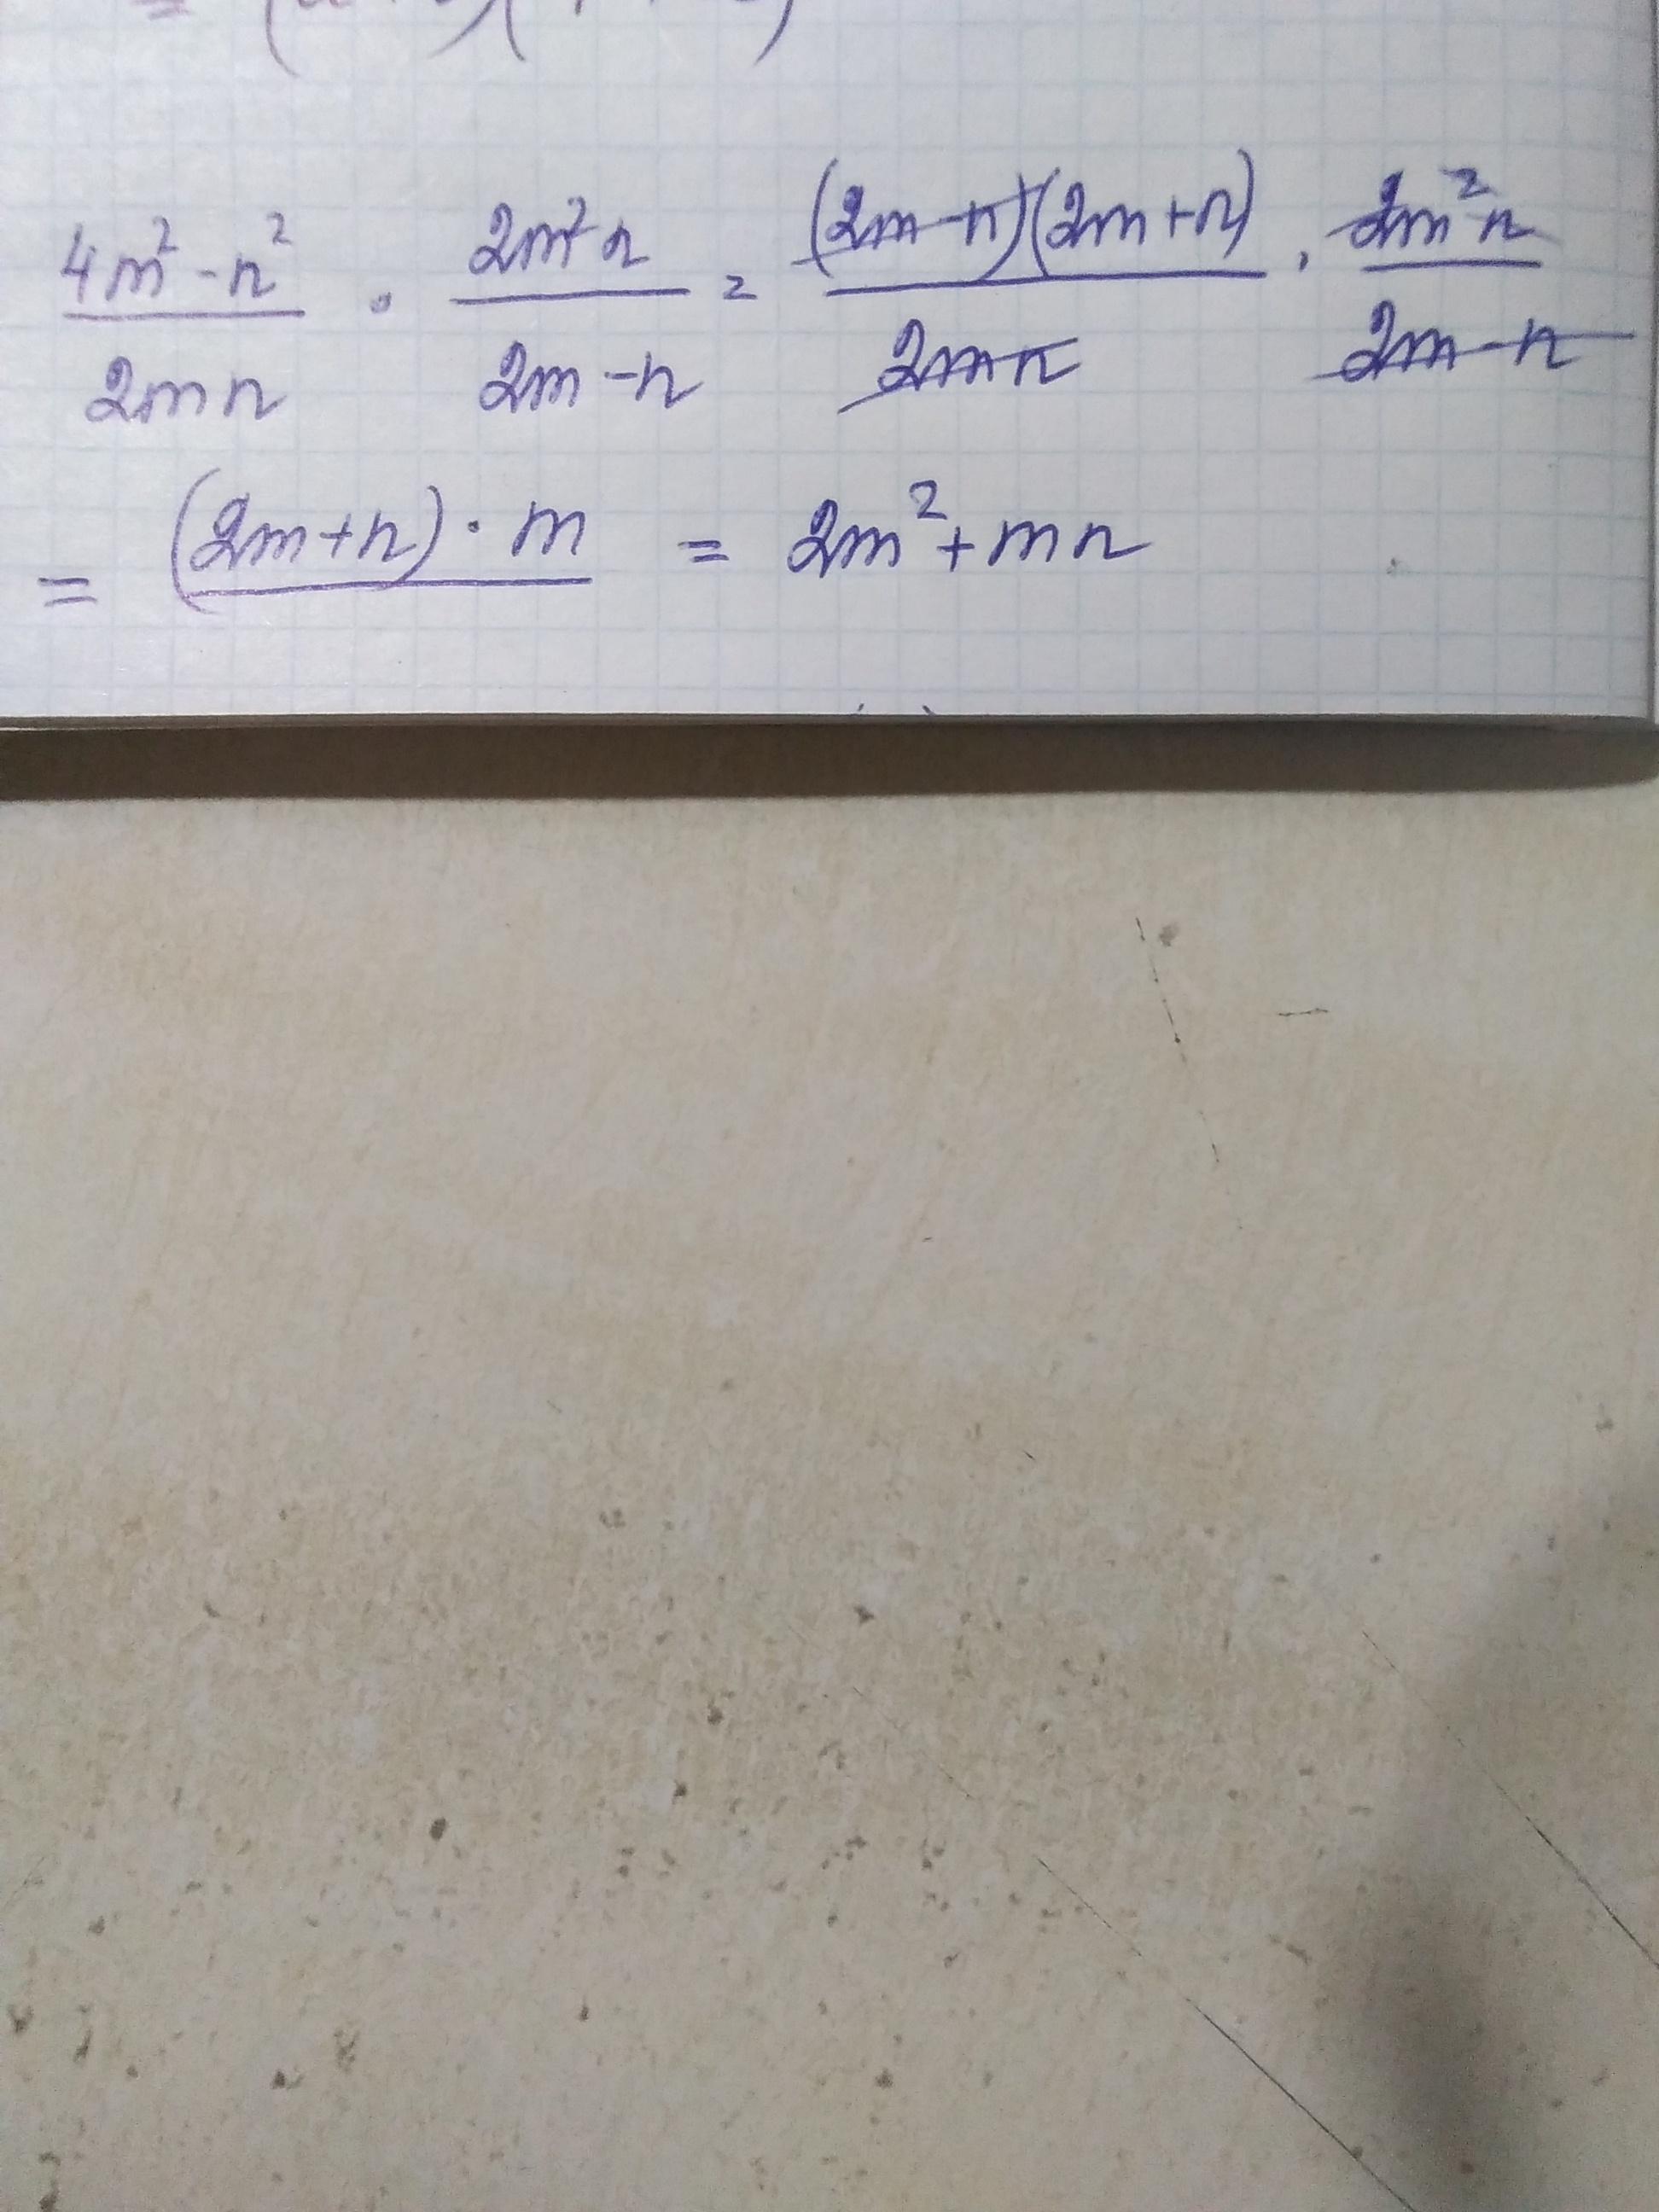 4m² - n² / 2mn · 2m²n / 2m - n = (2m - n)(2m + n) / 2mn · 2m²n / 2m - n
= (2m + n) · m = 2m² + mn